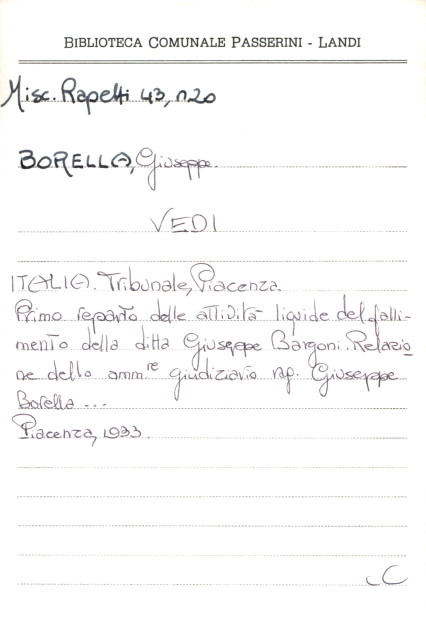 BIBLIOTECA COMUNALE PASSERINI - LANDI
Misc. Rapetti 43, n.20
BORELLA, Giuseppe.
VEDI
ITALIA. Tribunale, Piacenza.
Primo reparto delle attività liquide del falli-
mento della ditta Giuseppe Bargoni. Relazio
ne dello amm.re giudiziario rag. Giuseppe
Borella ...
Piacenza, 1933.